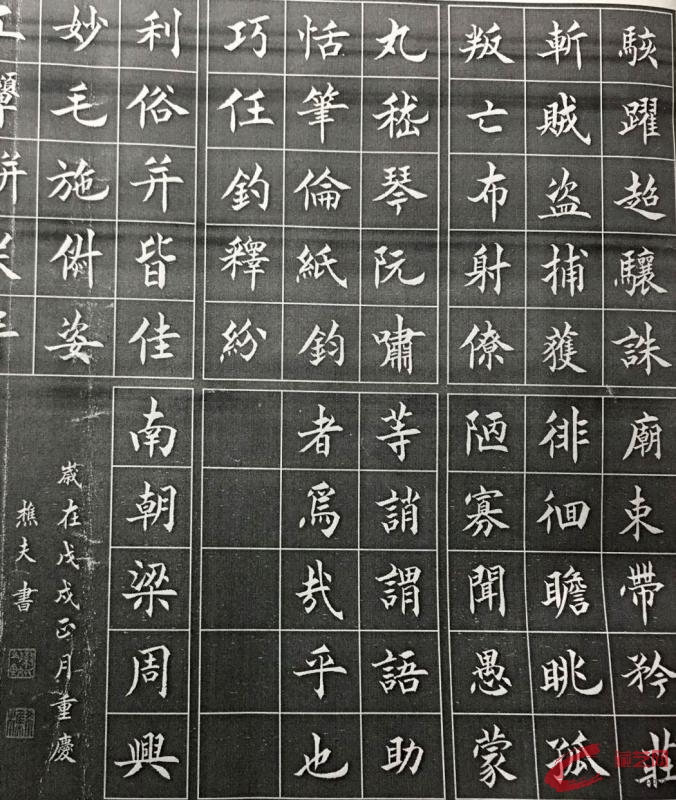 駭躍超驤誅
斬賊盜捕獲
叛亡布射僚
丸嵇琴阮嘯
恬筆倫紙鈞
巧任釣釋紛
利俗并皆佳
妙毛施俶姿
廟束帶矜莊
徘徊瞻眺孤
陋寡聞愚蒙
等誚謂語助
者焉哉乎也
南朝梁周興
歲在戊戌正月重慶
樵夫書